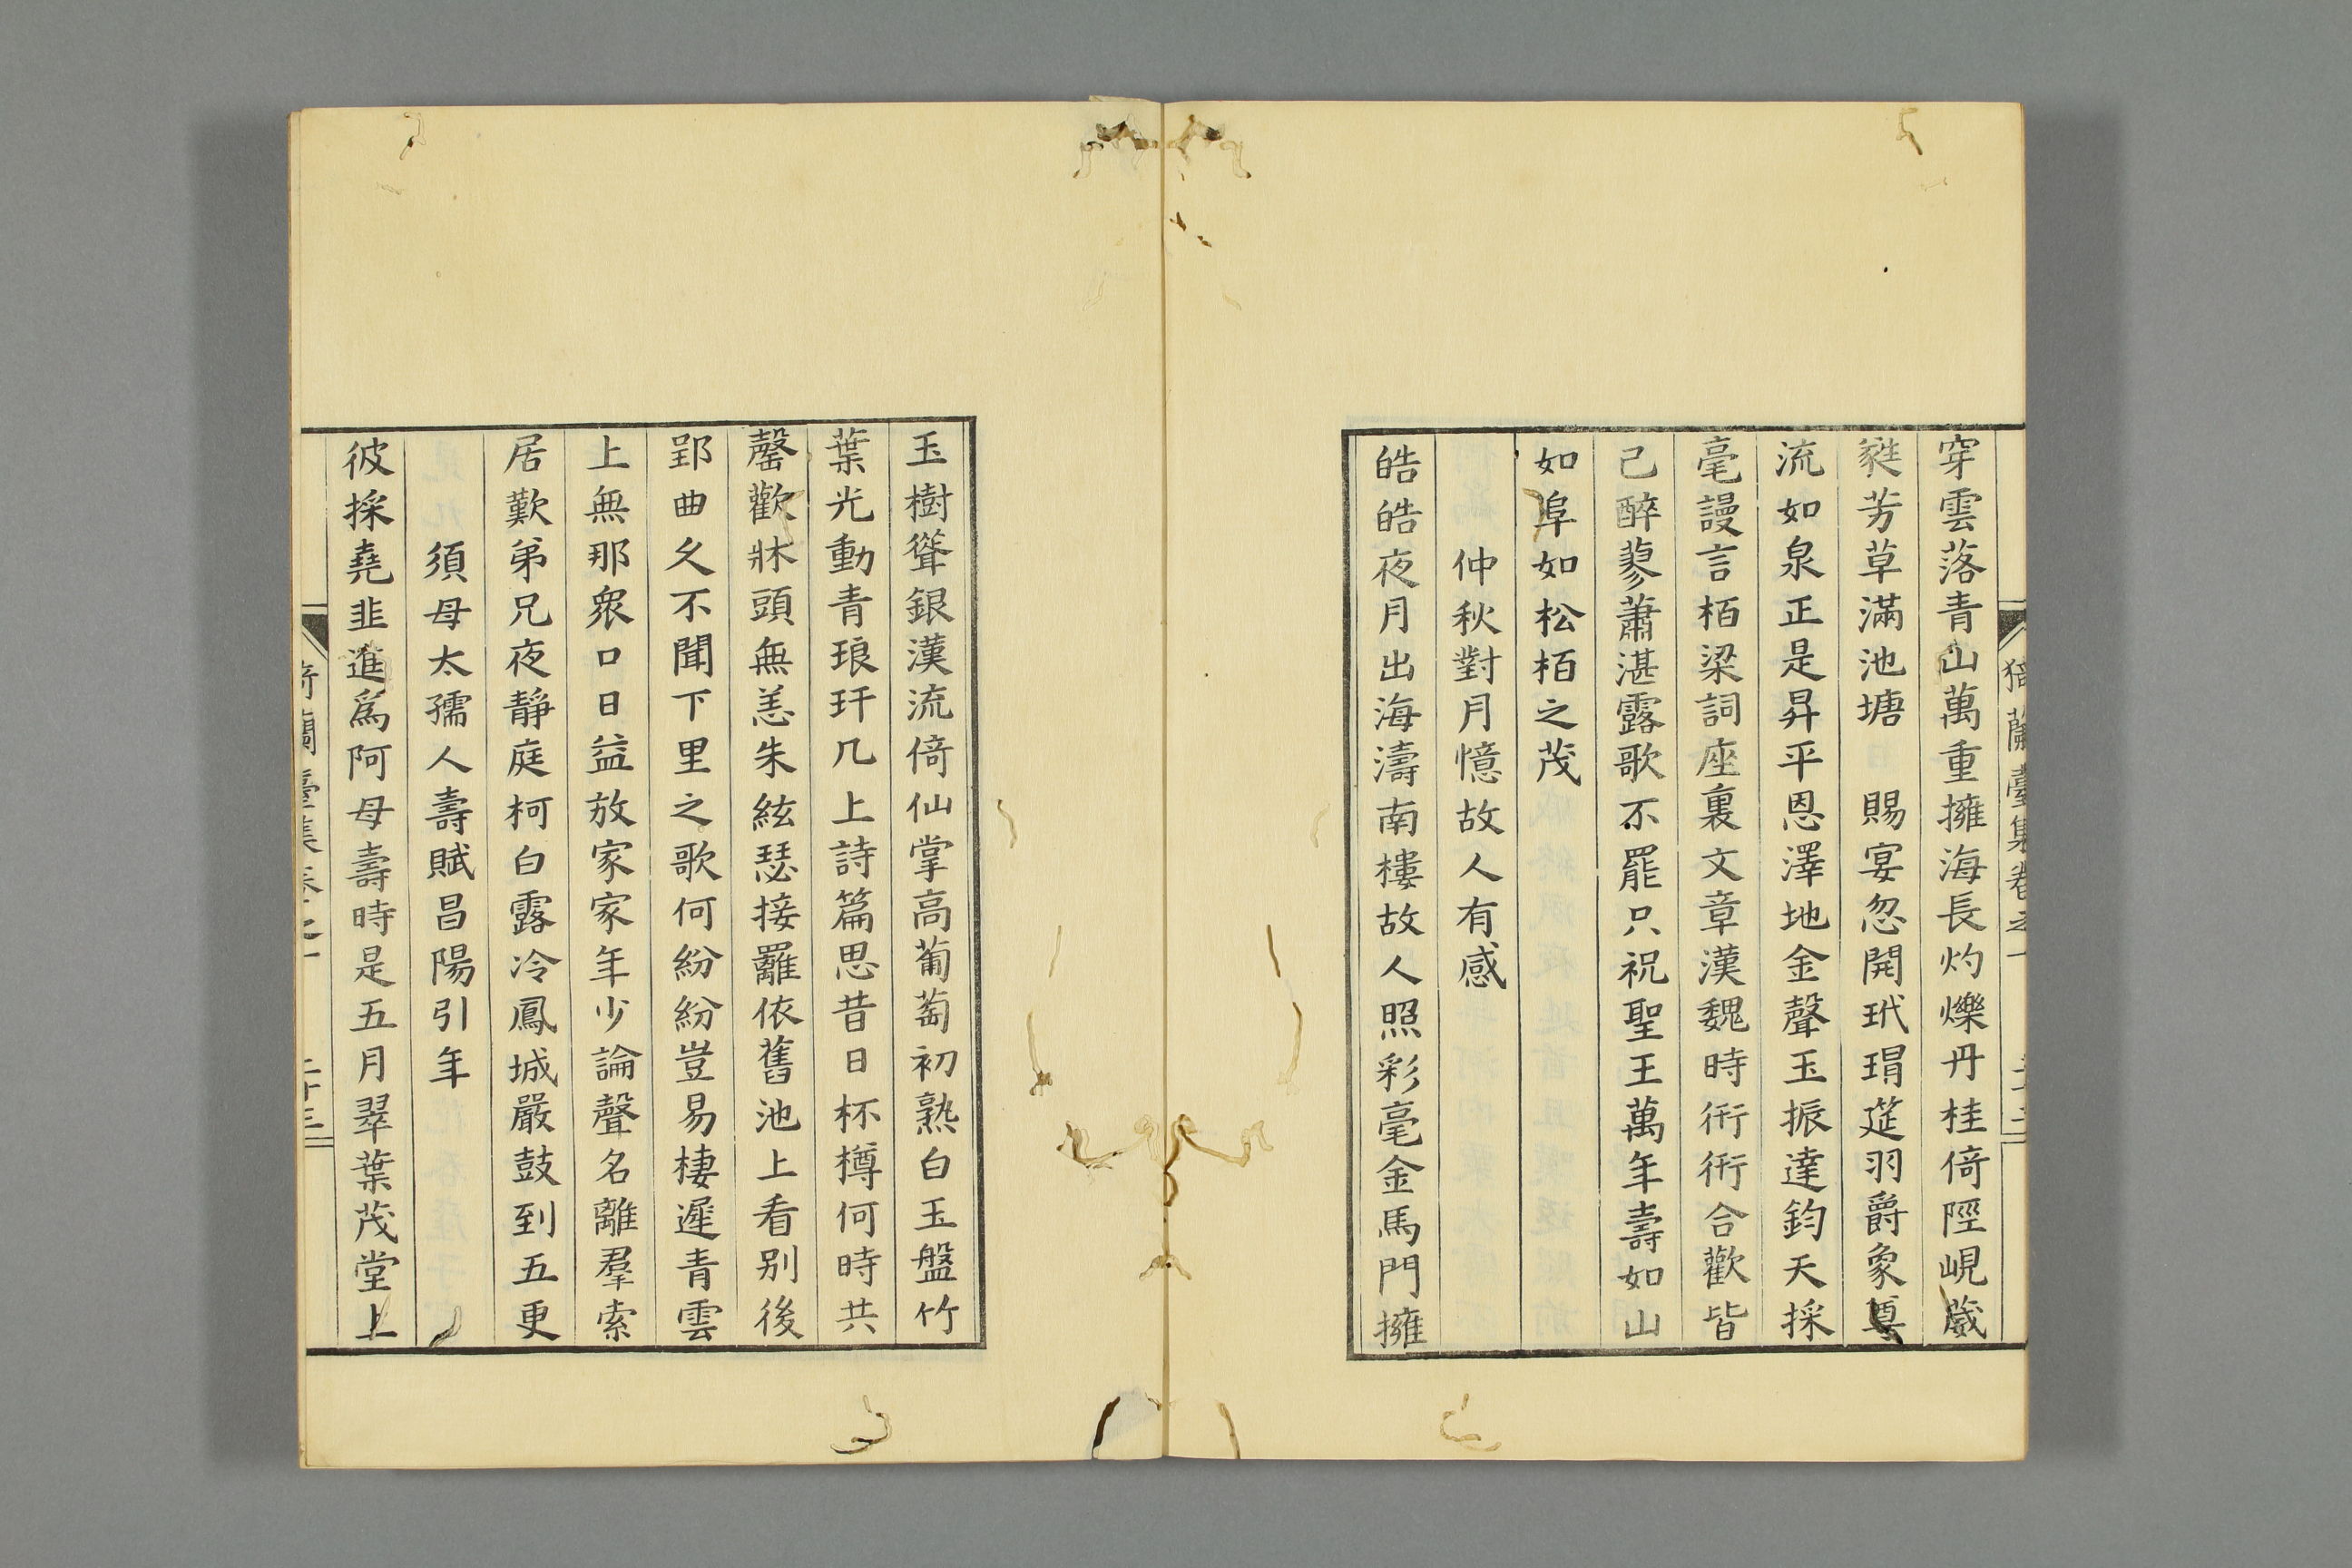 猗蘭臺集卷之一
穿雲落青山萬重擁海長灼爍丹桂倚陘峴葳
蕤芳草滿池塘　賜宴忽開玳瑁莚羽爵象尊
流如泉正是昇平恩澤地金聲玉振達鈞天採
毫謾言栢梁詞座裏文章漢魏時衎衎合歡皆
已醉蓼蕭湛露歌不罷只祝聖王萬年壽如山
如阜如松栢之茂
仲秋對月憶故人有感
皓皓夜月出海濤南樓故人照彩毫金馬門擁
玉樹聳銀漢流倚仙掌高葡萄初熟白玉盤竹
葉光動青琅玕几上詩篇思昔日杯樽何時共
罄歡牀頭無恙朱絃瑟接䍦依舊池上看別後
郢曲久不聞下里之歌何紛紛豈易棲遲青雲
上無那衆口日益放家家年少論聲名離羣索
居歎弟兄夜靜庭柯白露冷鳳城嚴鼓到五更
須母太孺人壽賦昌陽引年
彼採堯韭進爲阿母壽時是五月翠葉茂堂上
猗蘭臺集卷之一 二十三